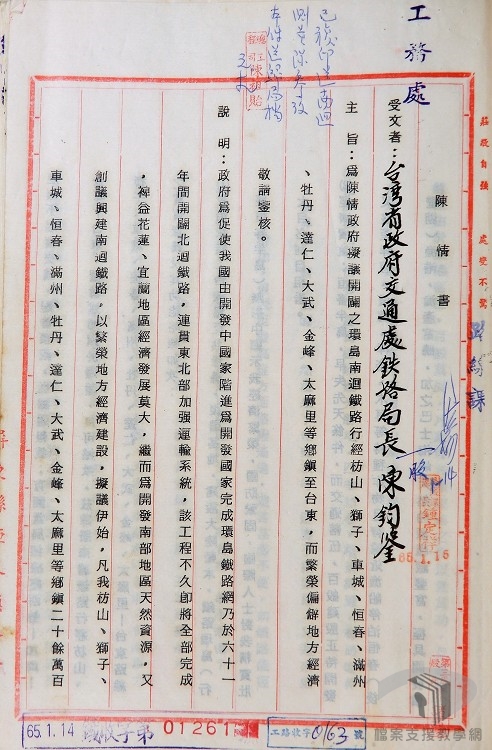 工務處
莊敬自強　處變不驚
陳情書
受文者：台灣省政府交通處鉄路局長　陳鈞鑒
主旨：爲陳情政府擬議開闢之環島南迴鐵路行經枋山、獅子、車城、恒春、滿州
、牡丹、達仁、大武、金峰、太麻里等鄉鎮至台東，而繁榮偏僻地方經濟
敬請鑒核。
說明：政府爲促使我國由開發中國家階進爲開發國家完成環島鐵路網乃於六十一
年間開闢北迴鐵路，連貫東北部加强運輸系統，該工程不久卽將全部完成
，裨益花蓮、宜蘭地區經濟發展莫大，繼而爲開發南部地區天然資源，又
創議興建南迴鐵路，以繁榮地方經濟建設，擬議伊始，凡我枋山、獅子、
車城、恒春、滿州、牡丹、達仁、大武、金峰、太麻里等鄉鎮二十餘萬百
65.1.15
65.1.14
第01261
工路收字0163號
檔案支援教學網